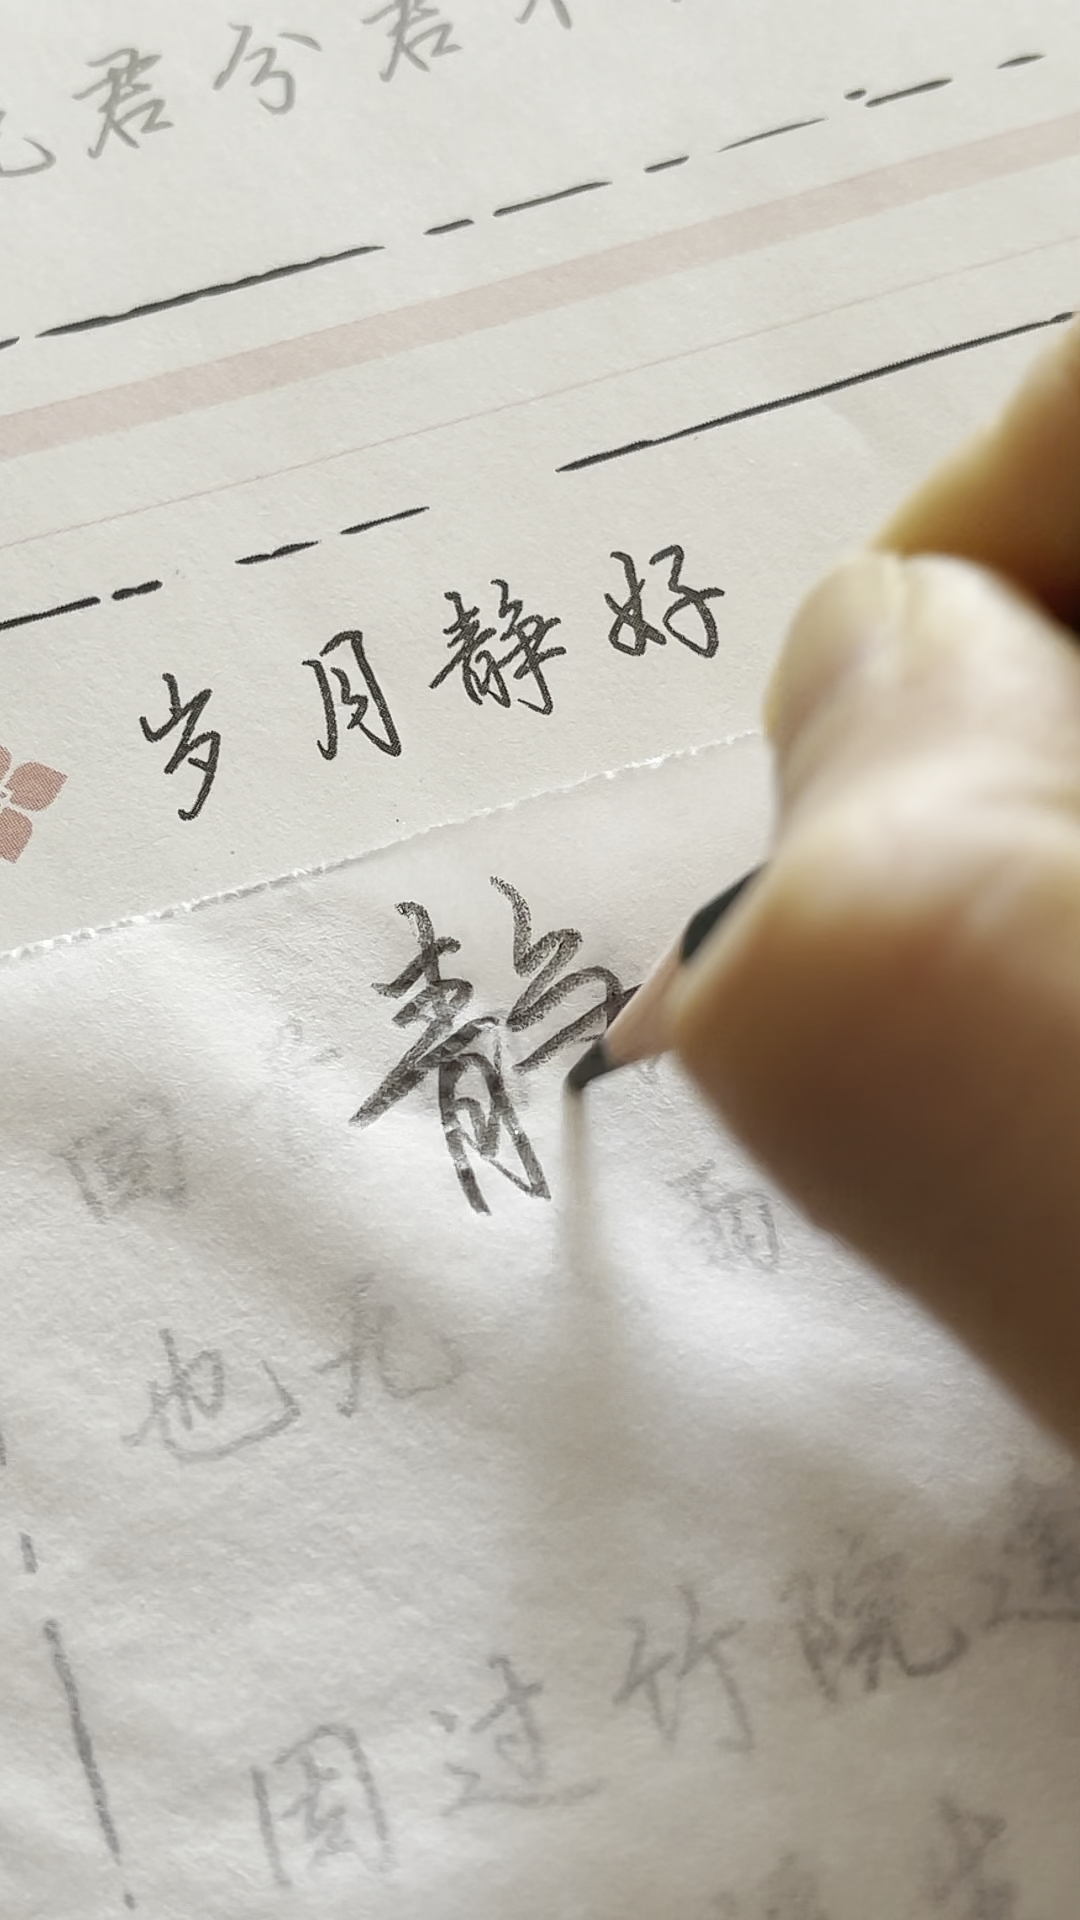 君兮君不
岁月静好
静
也无
因过竹院逢